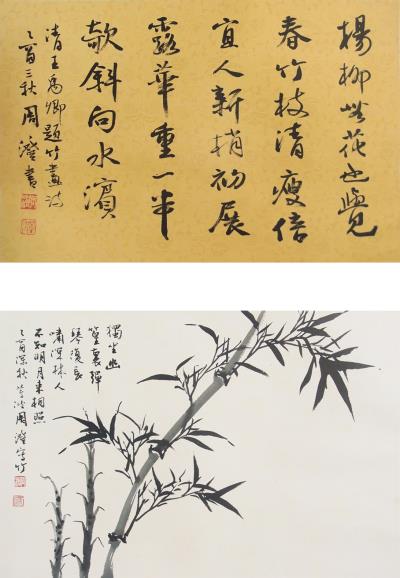 楊柳花也覺
春竹枝清瘦倍
宜人新梢初展
露華重一半
欹斜向水濱
清王禹卿題竹畫詩
乙酉三秋周澄書
獨坐幽
篁裏彈
琴復長
嘯深林人
不知明月來相照
乙酉深秋蓴波周澄寫竹